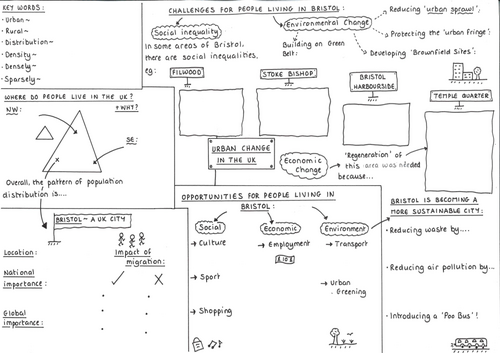 KEY WORDS:
- Urban~
- Rural~
- Distribution~
- Density~
- Densely~
- Sparsely~
CHALLENGES FOR PEOPLE LIVING IN BRISTOL:
Social inequality
In some areas of Bristol,
there are social inequalities,
eg:
FILWOOD
STOKE BISHOP
Environmental Change
Building on Green
Belt:
Reducing 'urban sprawl';
Protecting the 'urban fringe';
Developing 'Brownfield Sites':
BRISTOL
HARBOURSIDE
TEMPLE QUARTER
Economic
Change
'Regeneration' of
this area was needed
because...
URBAN CHANGE
IN THE UK
WHERE DO PEOPLE LIVE IN THE UK?
+WHY?
NW:
SE:
Overall, the pattern of population
distribution is....
BRISTOL~ A UK CITY
Location:
National
importance:
Global
importance:
Impact of
migration:
OPPORTUNITIES FOR PEOPLE LIVING IN
BRISTOL:
Social
→ Culture
→ Sport
→ Shopping
Economic
→ Employment
Environment
→ Transport
→ Urban
Greening
BRISTOL IS BECOMING A
MORE SUSTAINABLE CITY:
• Reducing waste by....
• Reducing air pollution by...
• Introducing a 'Poo Bus'!